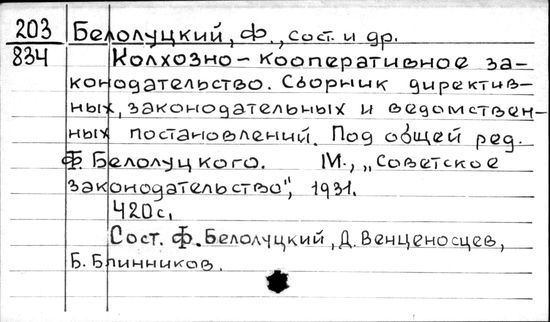 203 Белолуцкий, Ф., сост. и др.
834 Колхозно-кооперативное за-
конодательство. Сборник директив-
ных, законодательных и ведомствен-
ных постановлений. Под общей ред.
Ф. Белолуцкого. М., „Советское
законодательство", 1931.
420с.
Сост. Ф. Белолуцкий, Д. Венценосцев,
Б. Блинников.